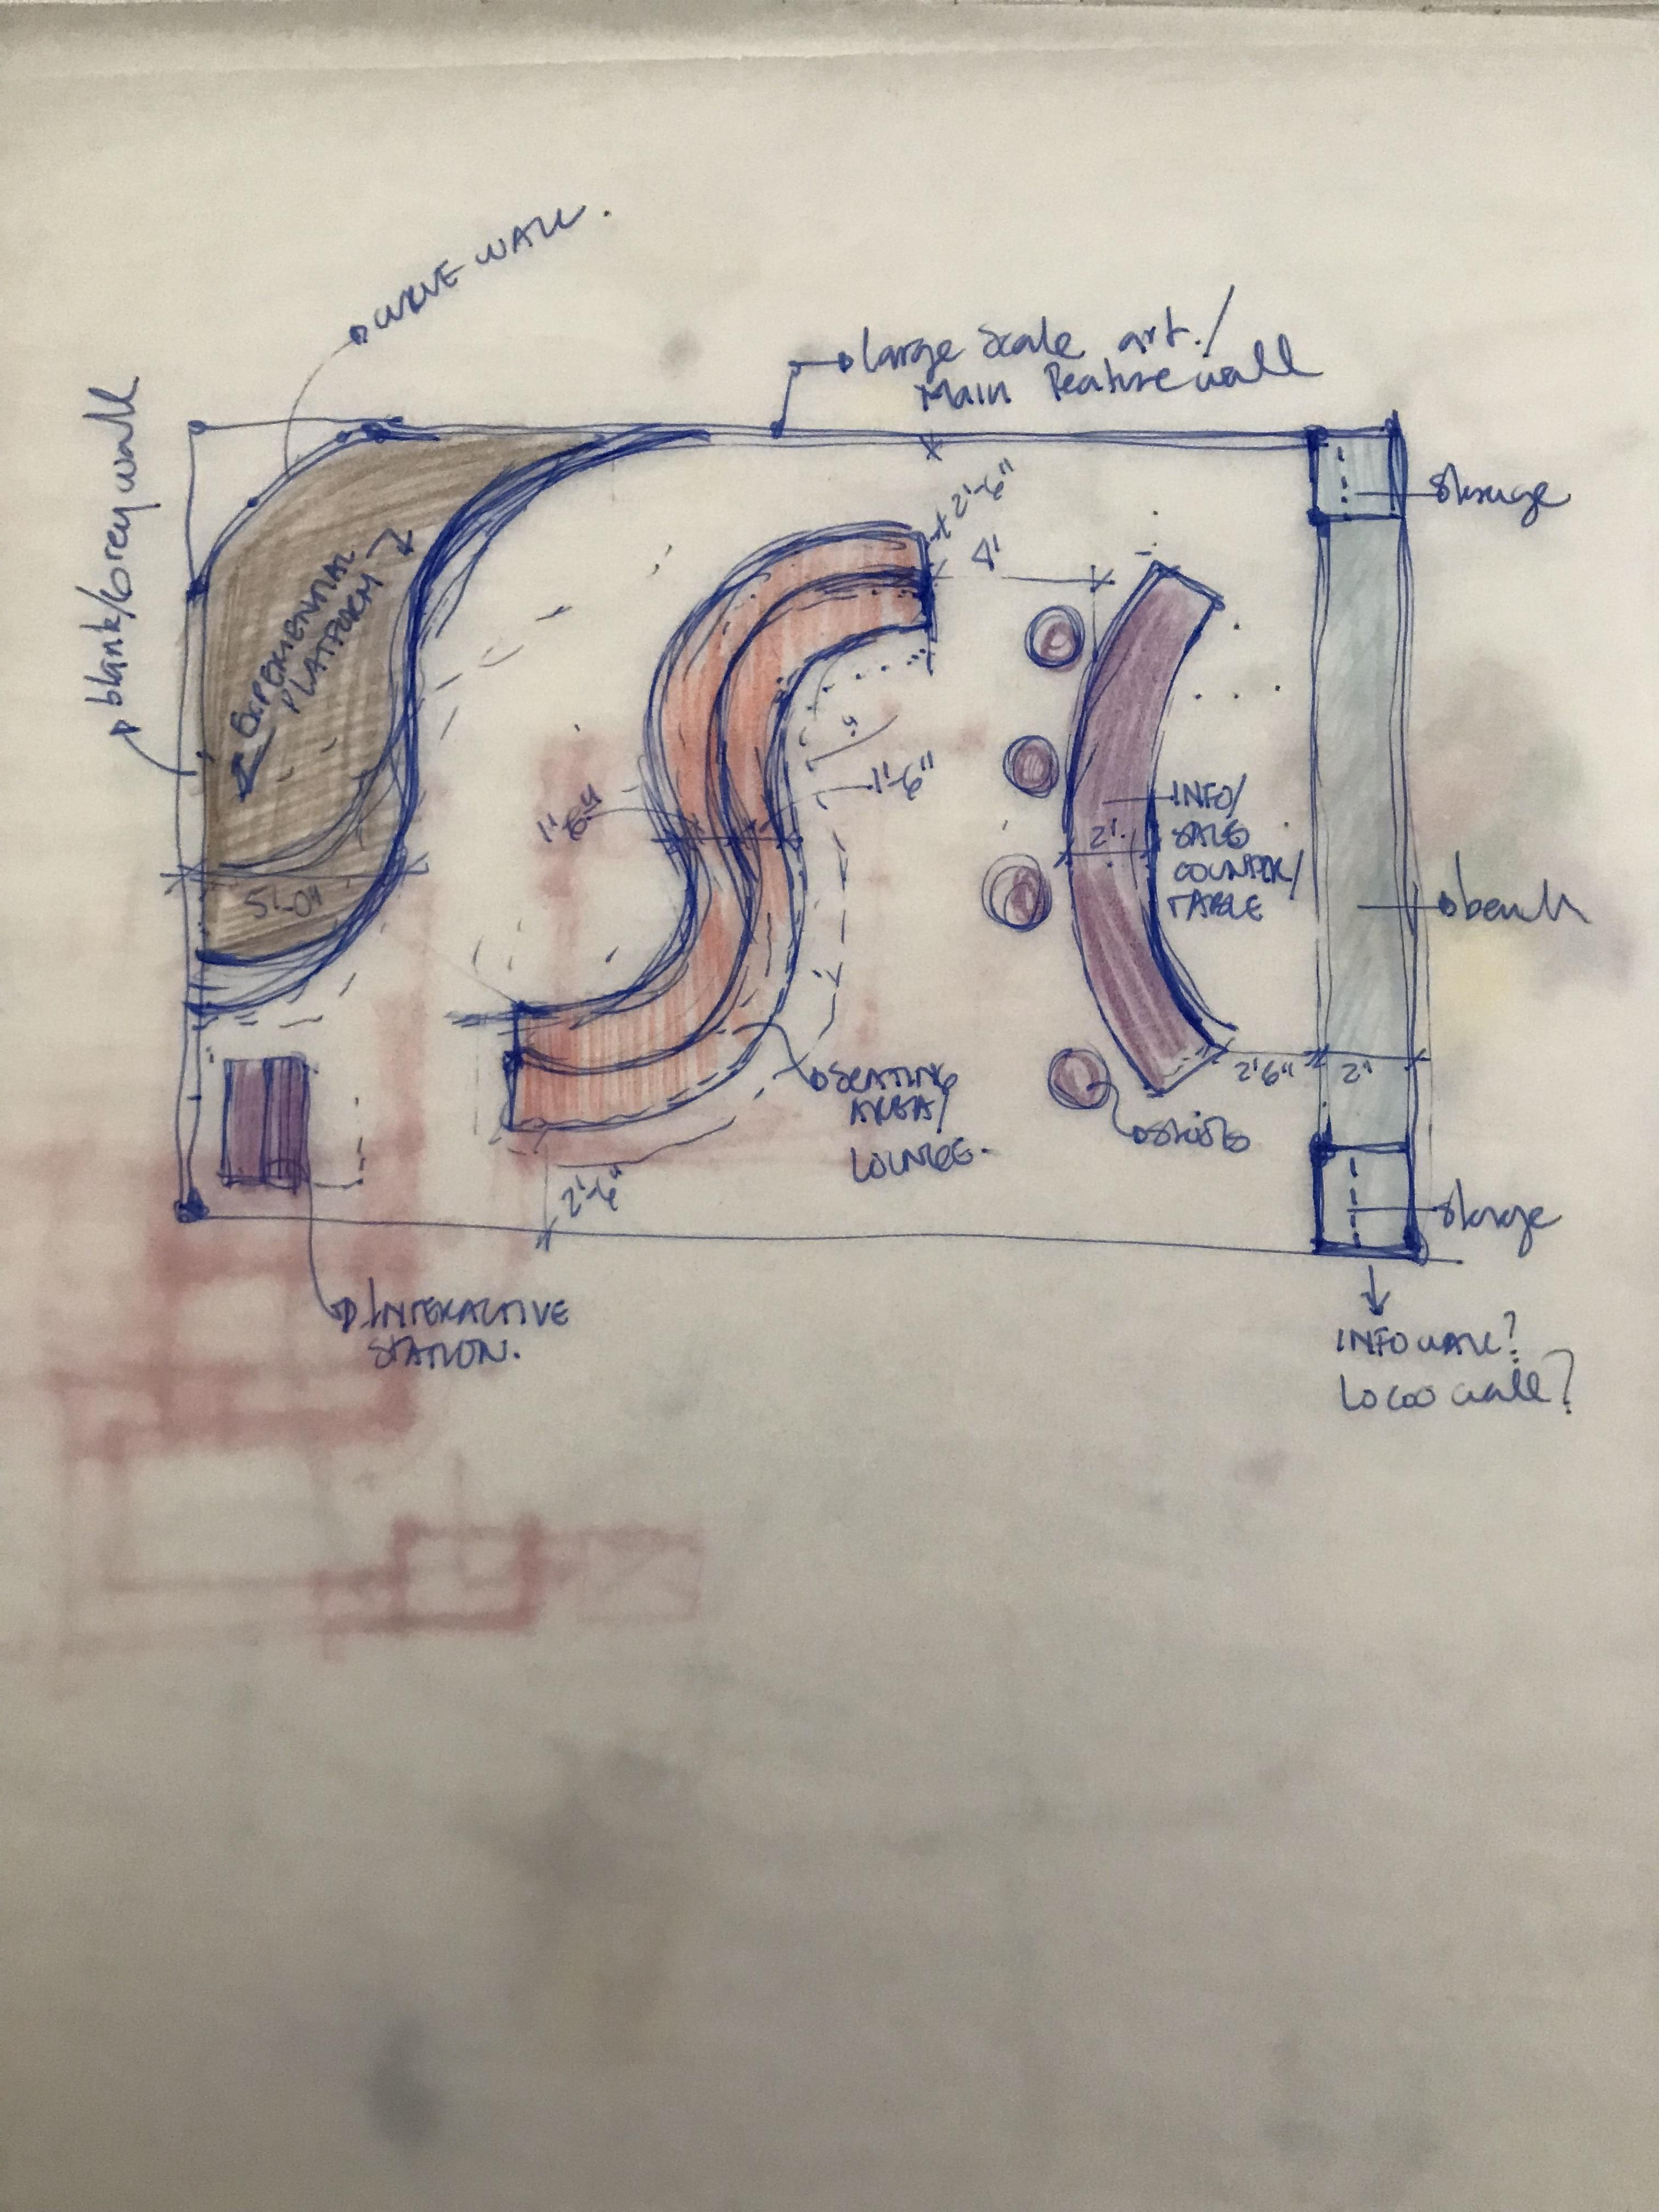 CURVE WALL.
large Scale art./
Main Feature wall
blank/Grey wall
2'-6"
4'
storage
EXPERIENTIAL
PLATFORM
1'-6"
1'-6"
INFO/
SALES
COUNTER/
TABLE
2'
5'-0"
bench
SEATING
AREA/
LOUNGE.
2'6"
2'
stools
2'-6"
storage
INTERACTIVE
STATION.
INFO WALL?
LOGO wall?